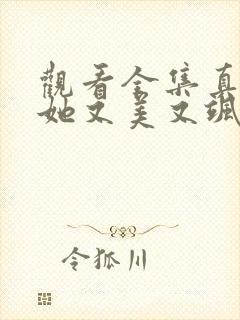 觀看全集真
她又美又颯
令狐川